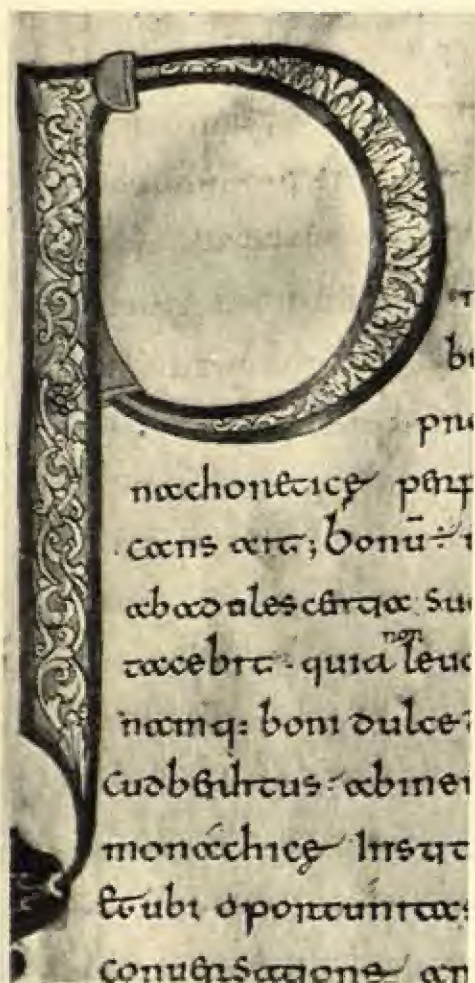 P
bi
pr
nachoreticę perf
cans ait; bonū ÷
abadulescentia su
tacebit · quia non leua
namq: boni dulce
Cudberhtus · abine
monachicę Instit
Et ubi oportunitas
conuersatione an